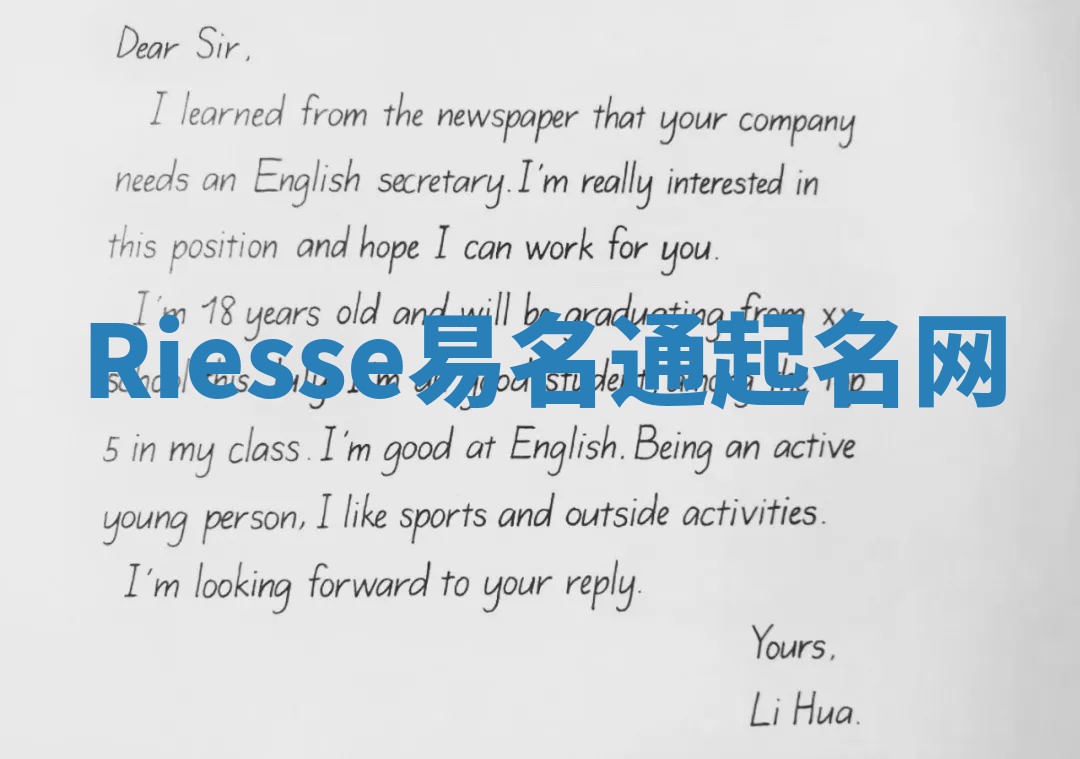 Dear Sir,
I learned from the newspaper that your company
needs an English secretary. I'm really interested in
this position and hope I can work for you.
I'm 18 years old and will be graduating from xx
Riesse易名通起名网
school this July. I'm a good student, among the Top
5 in my class. I'm good at English. Being an active
young person, I like sports and outside activities.
I'm looking forward to your reply.
Yours,
Li Hua.